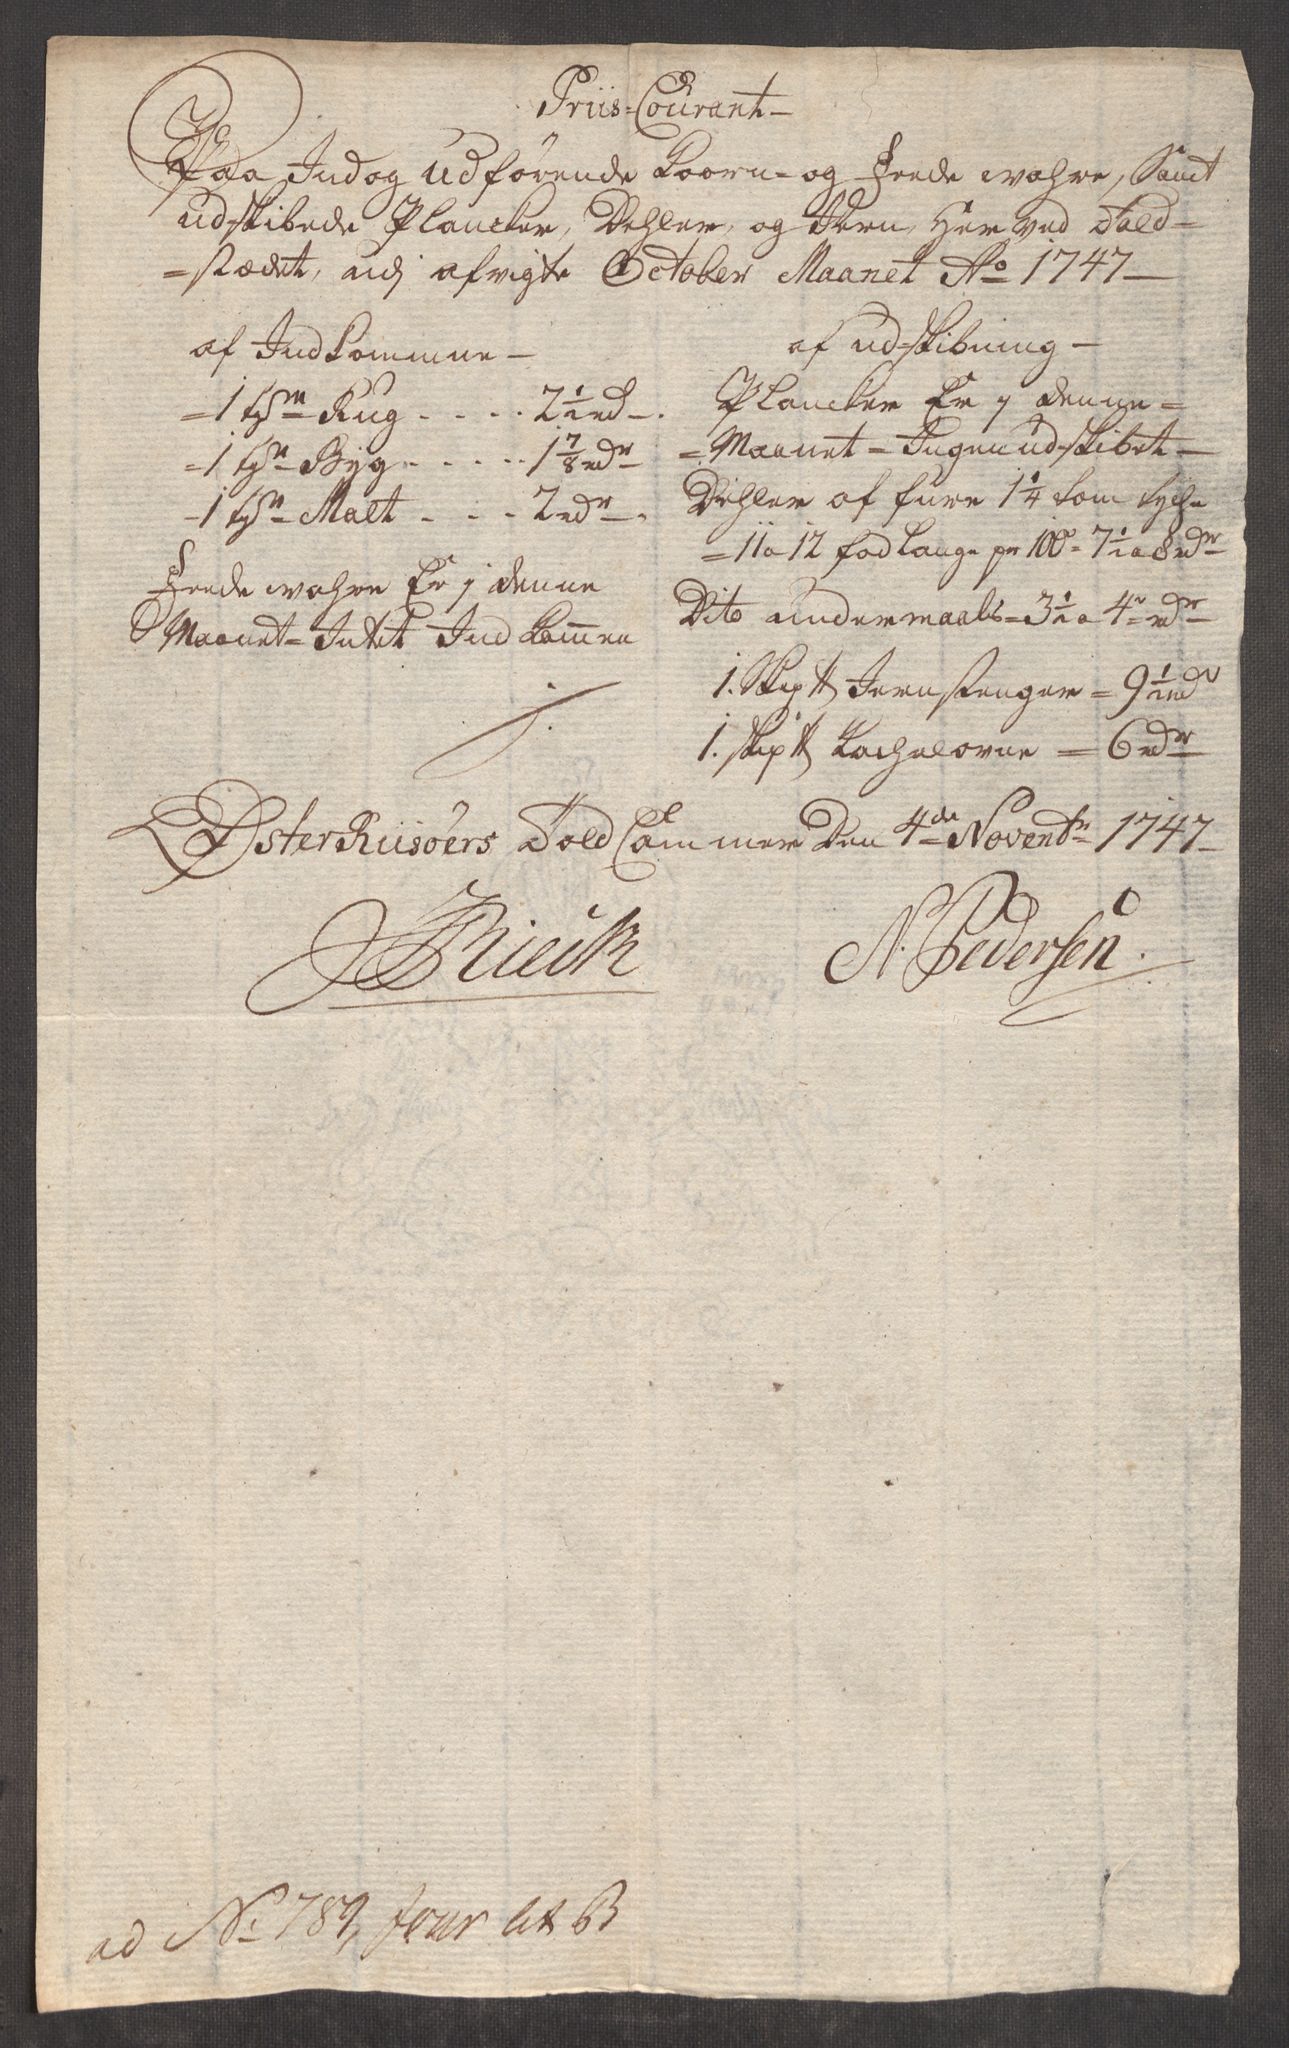 Priis-Courant-
Paa Ind og udførende Koorn- og fede wahre, Samt
udskibede Plancker, Dehler, og Jern, Her ved Told-
=stædet, udj afvigte October Maanet Ao 1747-
af Indkommne-
=1 tdn Rug - - - - 2½ rd-.
=1 tdn Byg - - - - 1⅞ rdr
-1 tdn Malt - - - 2 rdr-.
fede wahre Er j denne
Maanet= Intet Indkommen
af udskibning-
Plancker Er j denne=
=Maanet= Ingen udskibet-
Dehler af fure 1¼ tom tyche
=11 a 12 fod lange pr 100= 7½ a 8 rdr
Dito undermaals= 3½ a 4 rdr
1. Skip ℔ Jernstenger= 9½ rdr
1. skip ℔ Kachelovne = 6 rdr
ØsterRiisøers Told Cammer Den 4de Novembr 1747-
Rieck N. Pedersen.
ad No 789, Jour Lit B